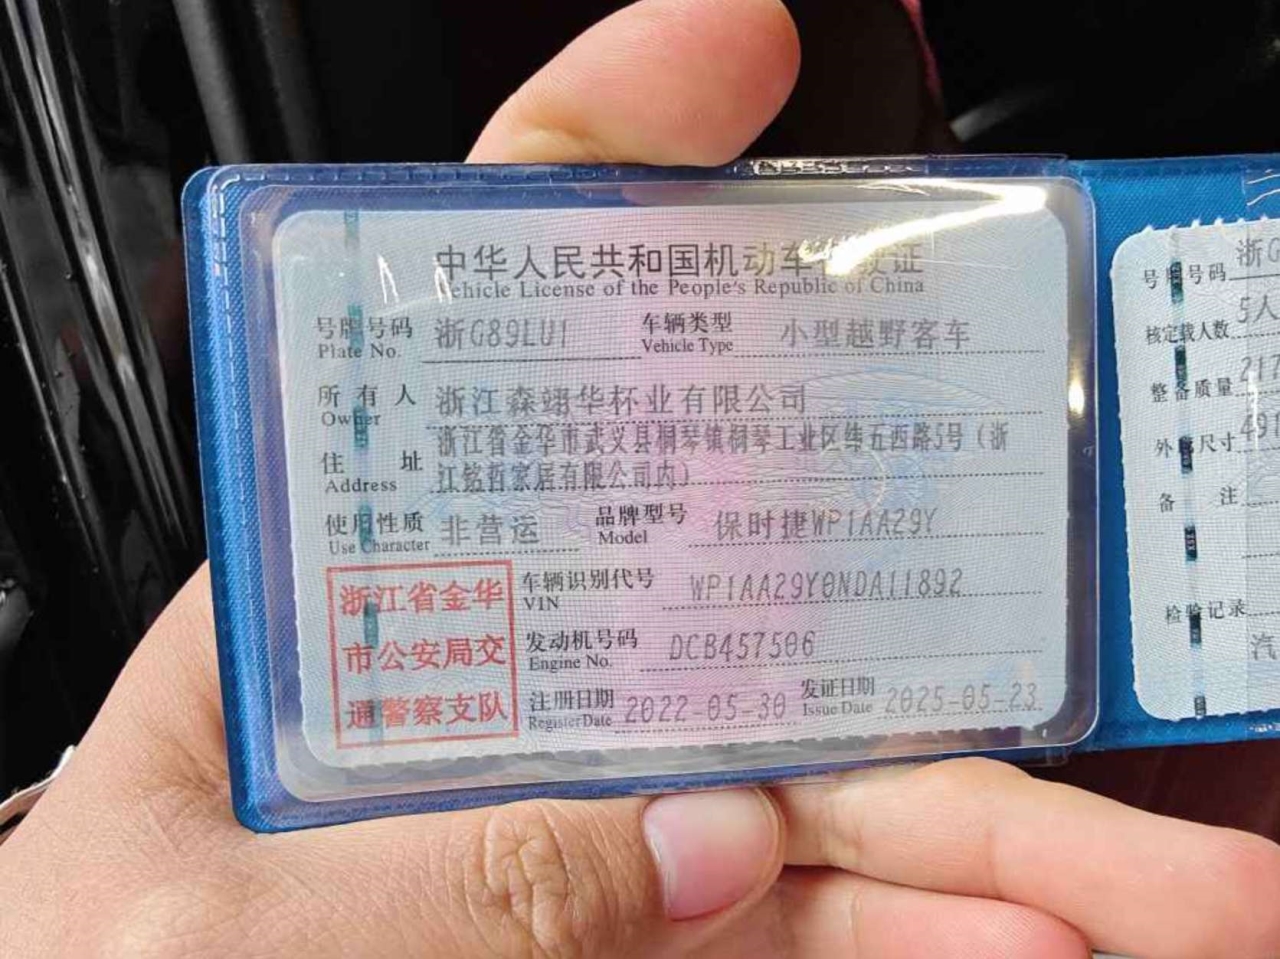 中华人民共和国机动车行驶证
Vehicle License of the People's Republic of China
号牌号码 浙G89LU1 车辆类型 小型越野客车
Plate No. Vehicle Type
所有人 浙江森翊华杯业有限公司
Owner
浙江省金华市武义县桐琴镇桐琴工业区纬五西路5号（浙
住址 江铭哲家居有限公司内）
Address
使用性质 非营运 品牌型号 保时捷WP1AA29Y
Use Character Model
浙江省金华
市公安局交
通警察支队
车辆识别代号 WP1AA29Y0NDA11892
VIN
发动机号码 DCB457506
Engine No.
注册日期 2022-05-30 发证日期 2025-05-23
Register Date Issue Date
号牌号码 浙G
核定载人数 5人
整备质量 217
外廓尺寸 491
备注
检验记录
汽